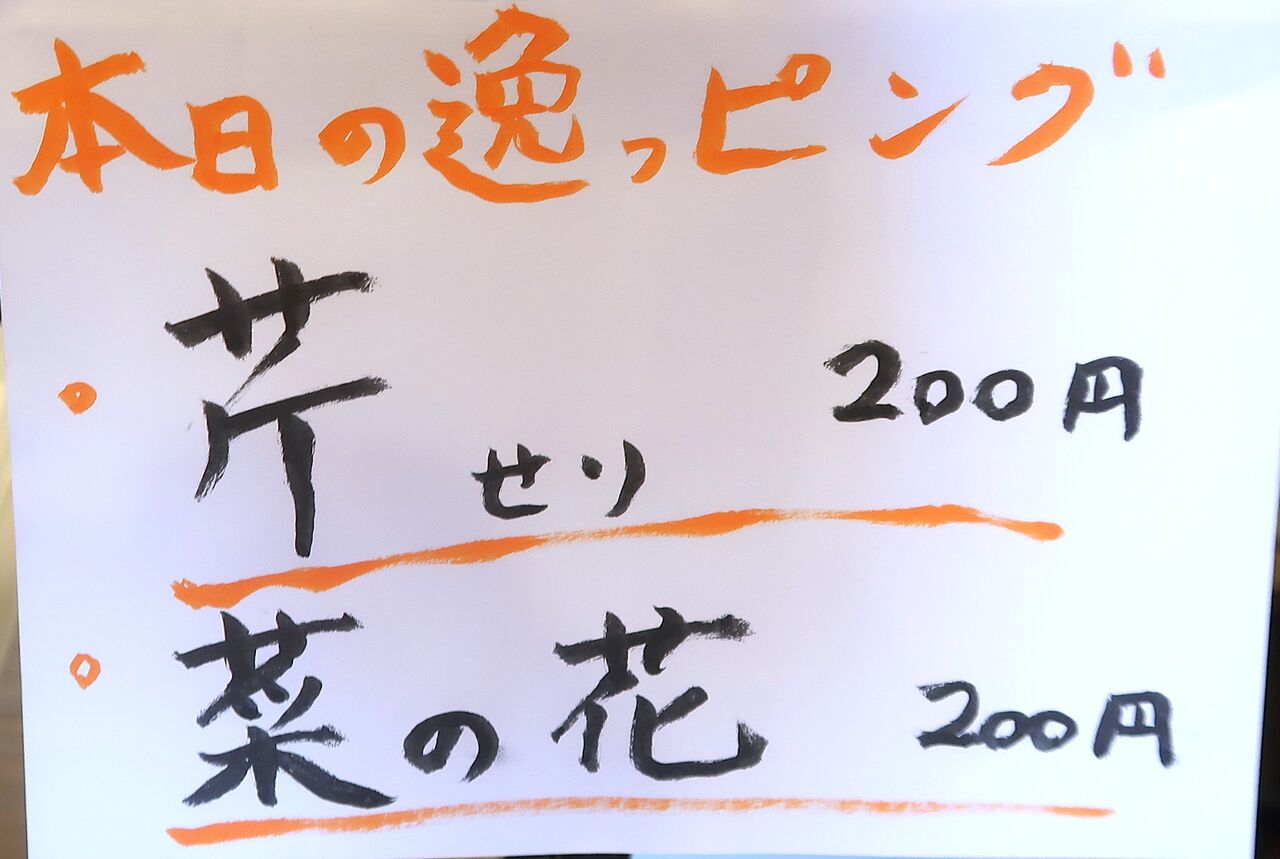 本日の逸っピング
芹 せり 200円
菜の花 200円